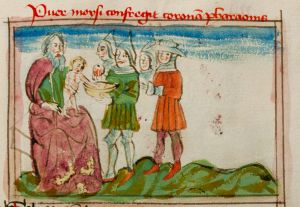 Puer moyses confregit coronā pharaonis